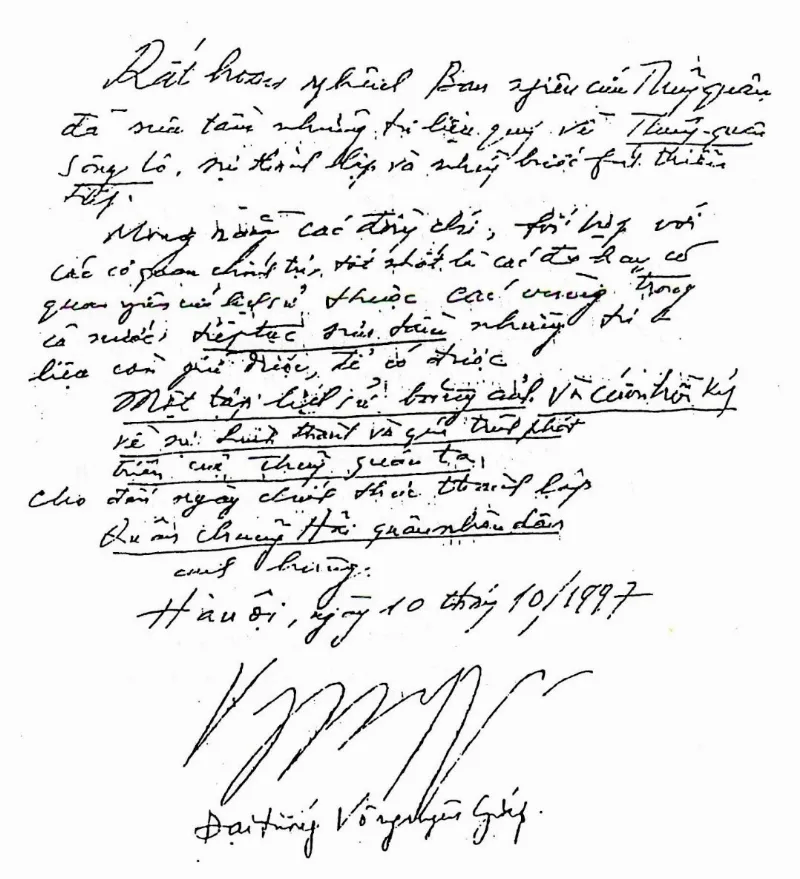 Rất hoan nghênh Ban nghiên cứu Thuỷ quân
đã sưu tầm những tư liệu quý về Thuỷ quân
Sông Lô, sự thành lập và những bước phát triển
Mong rằng các đồng chí, phối hợp với
các cơ quan chính trị, tốt nhất là các
quan nghiên cứu lịch sử thuộc các vùng trong
cả nước, tiếp tục sưu tầm những tư
liệu còn giữ được, để có được
Một tập lịch sử bằng ảnh và cuốn hồi ký
về sự hình thành và quá trình phát
triển của Thuỷ quân ta,
cho đến ngày chính thức thành lập
Quân chủng Hải quân nhân dân
anh hùng.
Hà nội, ngày 10 tháng 10/1997
Đại tướng Võ nguyên Giáp.